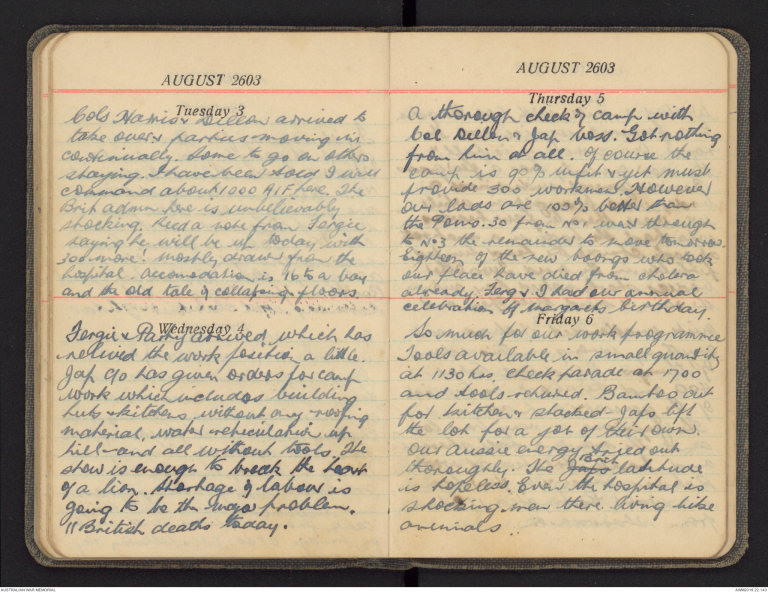 AUGUST 2603
Tuesday 3
Cols Harris & Dillon arrived to
take over & parties moving in
continually. Some to go on others
staying. I have been told I will
command about 1000 AIF here. The
Brit admin here is unbelievably
shocking. Had a note from Fergie
saying he will be up today with
300 more: mostly drawn from the
hospital. Accomodation is 16 to a bay
and the old tale of collapsing floors.
Wednesday 4
Fergie & Parry arrived, which has
relieved the work position a little.
Jap C/O has given orders for camp
work which includes building
huts & kitchens, without any roofing
material, water reticulation up
hill - and all without tools. The
show is enough to break the heart
of a lion. Shortage of labour is
going to be the major problem.
11 British deaths today.
AUGUST 2603
Thursday 5
A thorough check of camp with
Col Dillon & Jap boss. Got nothing
from him at all. Of course the
camp is 90% unfit & yet must
provide 300 workmen. However
our lads are 100% better than
the Poms. 30 from No1 went through
to No3 the remainder to move tomorrow.
Eighteen of the new boongs who took
our place have died from cholera
already. Ferg & I had our annual
celebration of Margaret's birthday.
Friday 6
So much for our work programme
Tools available in small quantity
at 1130 hrs, check parade at 1700
and tools returned. Bamboo cut
for kitchen & stacked - Japs lift
the lot for a job of their own.
Our Aussie energy tried out
thoroughly. The Japs Brit latitude
is hopeless. Even the hospital is
shocking. men there living like
animals.
AUSTRALIAN WAR MEMORIAL
AWM2019.22.143